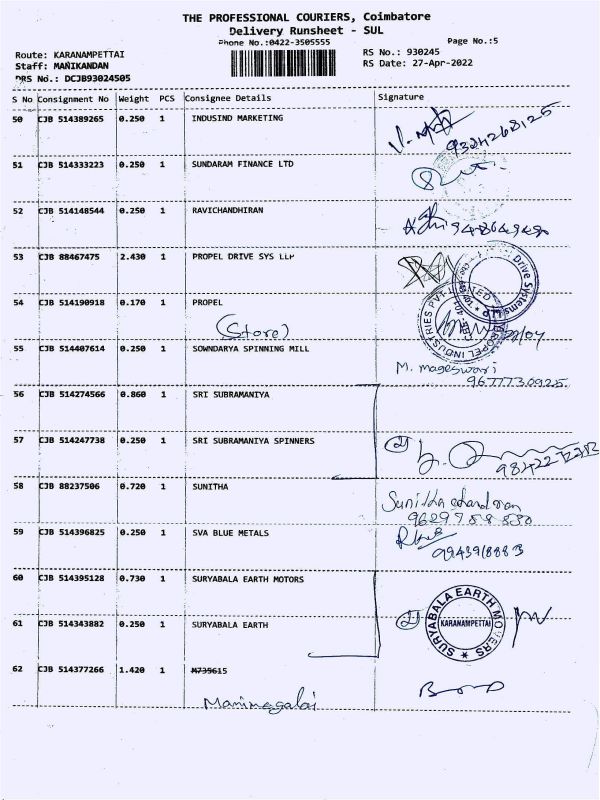 THE PROFESSIONAL COURIERS, Coimbatore
Delivery Runsheet - SUL
Phone No.:0422-3505555
Page No.:5
Route: KARANAMPETTAI
RS No.: 930245
Staff: MANIKANDAN
RS Date: 27-Apr-2022
DRS No.: DCJB93024505
S No Consignment No Weight PCS Consignee Details Signature
50 CJB 514389265 0.250 1 INDUSIND MARKETING
9324268125
51 CJB 514333223 0.250 1 SUNDARAM FINANCE LTD
52 CJB 514148544 0.250 1 RAVICHANDHIRAN
53 CJB 88467475 2.430 1 PROPEL DRIVE SYS LLP
Drive Systems LLP
54 CJB 514190918 0.170 1 PROPEL
(Store)
PROPEL INDUSTRIES PVT LIMITED
55 CJB 514407614 0.250 1 SOWNDARYA SPINNING MILL
M. Mageswari
9677730925
56 CJB 514274566 0.860 1 SRI SUBRAMANIYA
57 CJB 514247738 0.250 1 SRI SUBRAMANIYA SPINNERS
58 CJB 88237506 0.720 1 SUNITHA
59 CJB 514396825 0.250 1 SVA BLUE METALS
60 CJB 514395128 0.730 1 SURYABALA EARTH MOTORS
61 CJB 514343882 0.250 1 SURYABALA EARTH
SURYABALA EARTH MOVERS
KARANAMPETTAI
62 CJB 514377266 1.420 1 M739615
Manimegalai